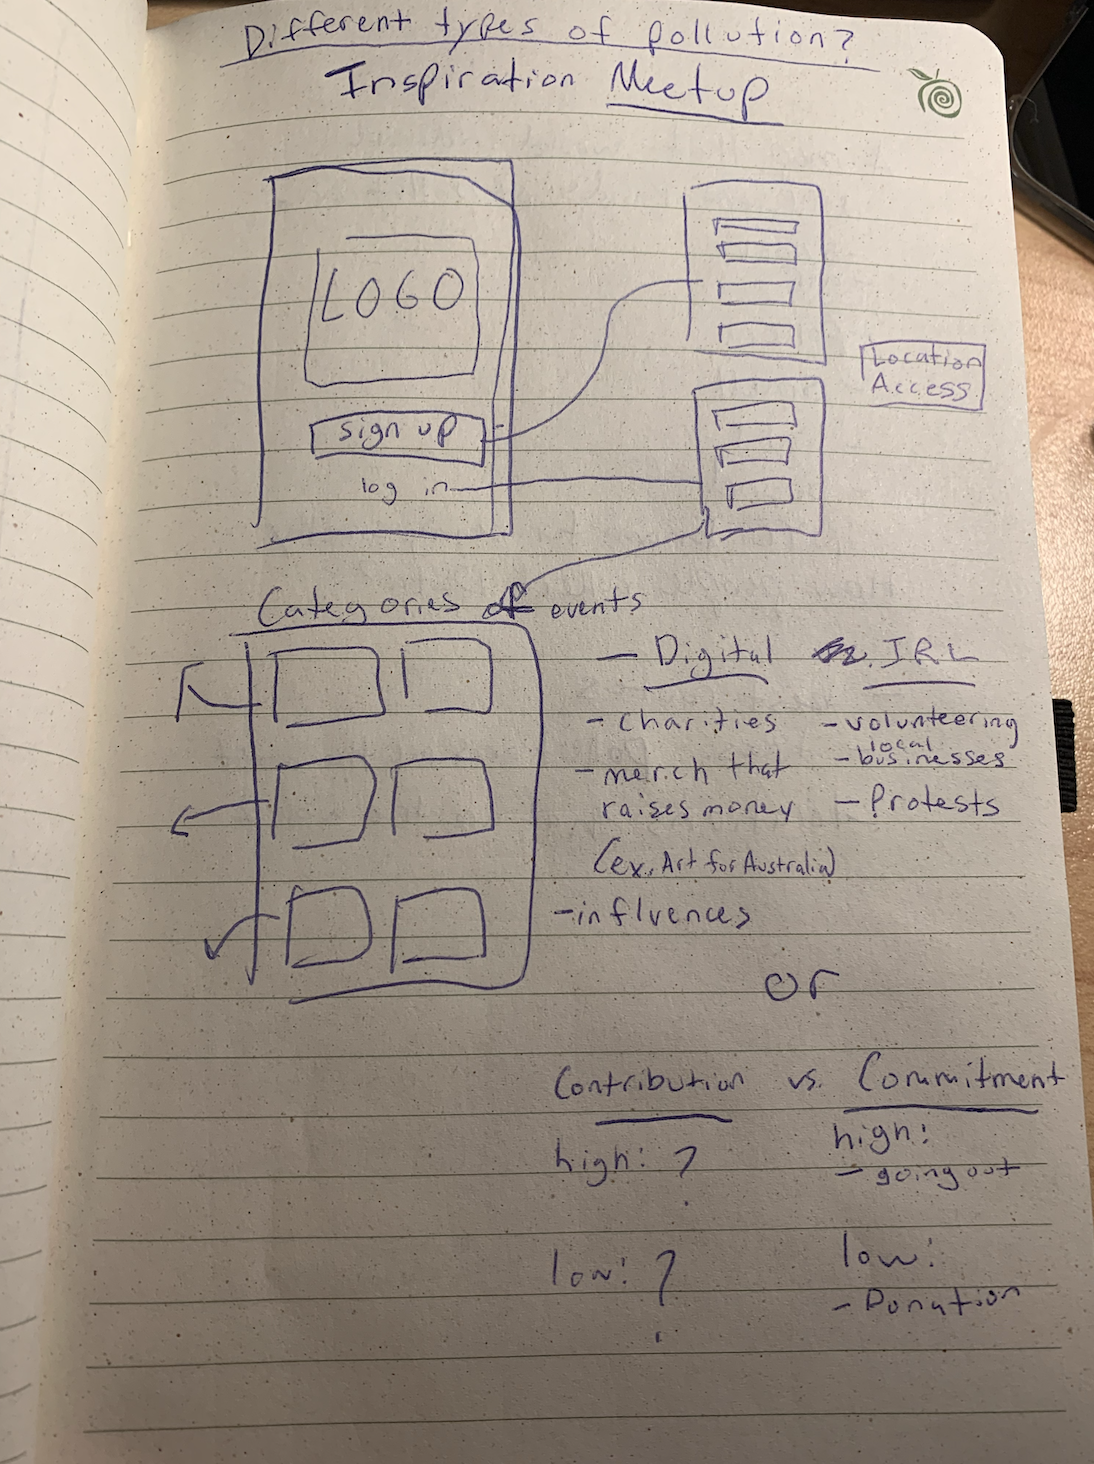 Different types of pollution?
Inspiration Meetup
LOGO
sign up
log in
Location
Access
Categories of events
- Digital
- charities
- merch that
raises money
(ex. Art for Australia)
- influences
IRL
- volunteering
local
- businesses
- Protests
or
Contribution vs. Commitment
high: ?
low: ?
high:
- going out
low:
- Donation